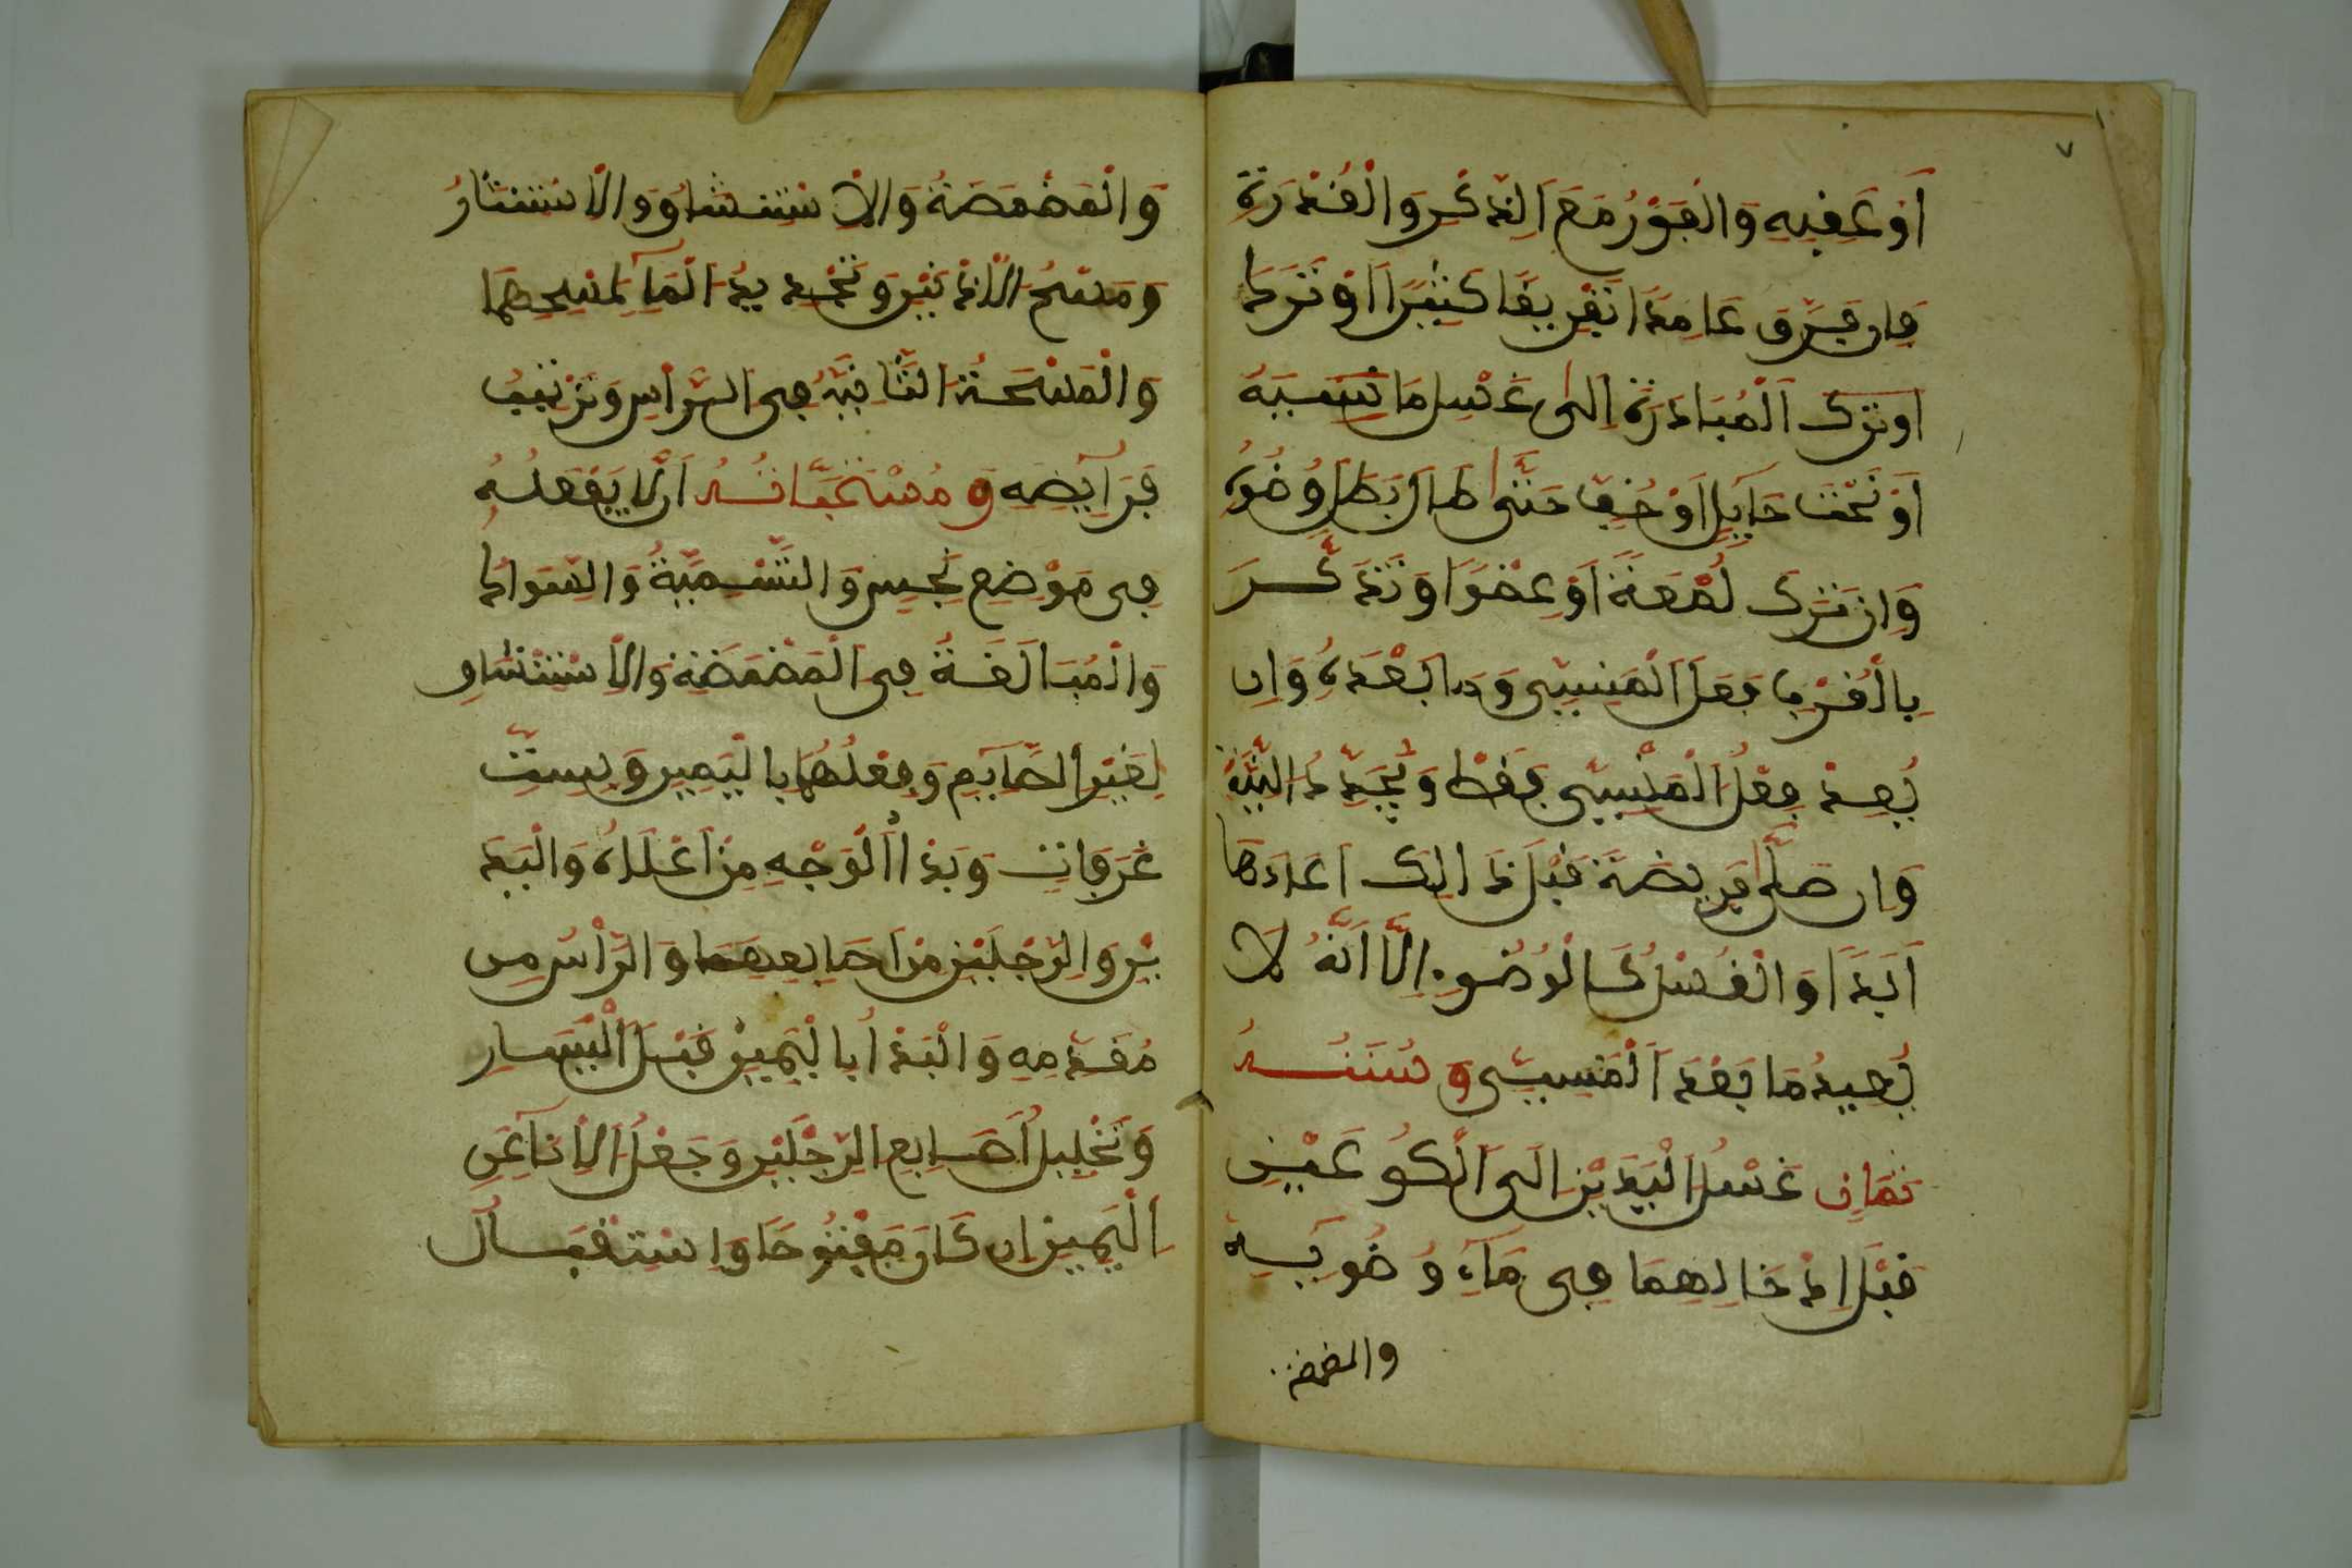 ٧
اَوْ عَفِبِهِ وَالْفَوْرُ مَعَ الذِّكْرِ وَالْقُدْرَةِ
فَإِن فَرَّقَ عَامِدًا تَفْرِيقًا كَثِيرًا اَوْ تَرَكَ
اَوْ تَرَكَ الْمُبَادَرَةَ إِلَى غَسْلِ مَا نَسِيَهُ
اَوْ تَحْتَ حَايِلٍ اَوْ خُفٍّ حَتَّى طَالَ بَطَلَ وُضُوءُهُ
وَإِن تَرَكَ لُمْعَةً اَوْ عُضْوًا وَتَذَكَّرَ
بِالْقُرْبِ فَعَلَ الْمَنْسِيَّ وَمَا بَعْدَهُ وَإِن
بَعُدَ فِعْلُ الْمَنْسِيِّ فَقَطْ وَيُجَدِّدُ النِّيَّةَ
وَإِن صَلَّى فَرِيضَةً قَبْلَ ذَالِكَ اَعَادَهَا
اَبَدًا وَالْغُسْلُ كَالْوُضُوءِ اِلَّا اَنَّهُ لَا
يُعِيدُ مَا بَعْدَ الْمَنْسِيِّ وَسُنَنُهُ
ثَمَانٍ غَسْلُ الْيَدَيْنِ اِلَى الْكُوعَيْنِ
قَبْلَ اِدْخَالِهِمَا فِي مَآءِ وُضُويِهِ
والمضمضة
وَالْمَضْمَضَةُ وَالاِسْتِنْشَاقُ وَالاِسْتِنْثَارُ
وَمَسْحُ الاُذْنَيْنِ وَتَجْدِيدُ الْمَآءِ لِمَسْحِهِمَا
وَالْمَسْحَةُ الثَّانِيَةُ فِي الرَّأْسِ وَتَرْتِيبُ
فَرَآيِضِهِ وَمُسْتَحَبَّاتُهُ اَن لَّا يَفْعَلَهُ
فِي مَوْضِعٍ نَجِسٍ وَالتَّسْمِيَّةُ وَالسِّوَاكُ
وَالْمُبَالَغَةُ فِي الْمَضْمَضَةِ وَالاِسْتِنْشَاقِ
لِغَيْرِ الصَّآيِمِ وَفِعْلُهُمَا بِالْيَمِينِ وَبِسِتِّ
غَرَفَاتٍ وَبَدْأُ الْوَجْهِ مِنْ اَعْلَاهُ وَالْيَدَ
يْنِ وَالرِّجْلَيْنِ مِنْ اَصَابِعِهِمَا وَالرَّأْسِ مِن
مُقَدَّمِهِ وَالْبَدْأُ بِالْيَمِينِ قَبْلَ الْيَسَارِ
وَتَخْلِيلُ اَصَابِعِ الرِّجْلَيْنِ وَجَعْلُ الاِنَآءِ عَنِ
الْيَمِينِ اِن كَانَ مَفْتُوحًا وَاسْتِقْبَالُ